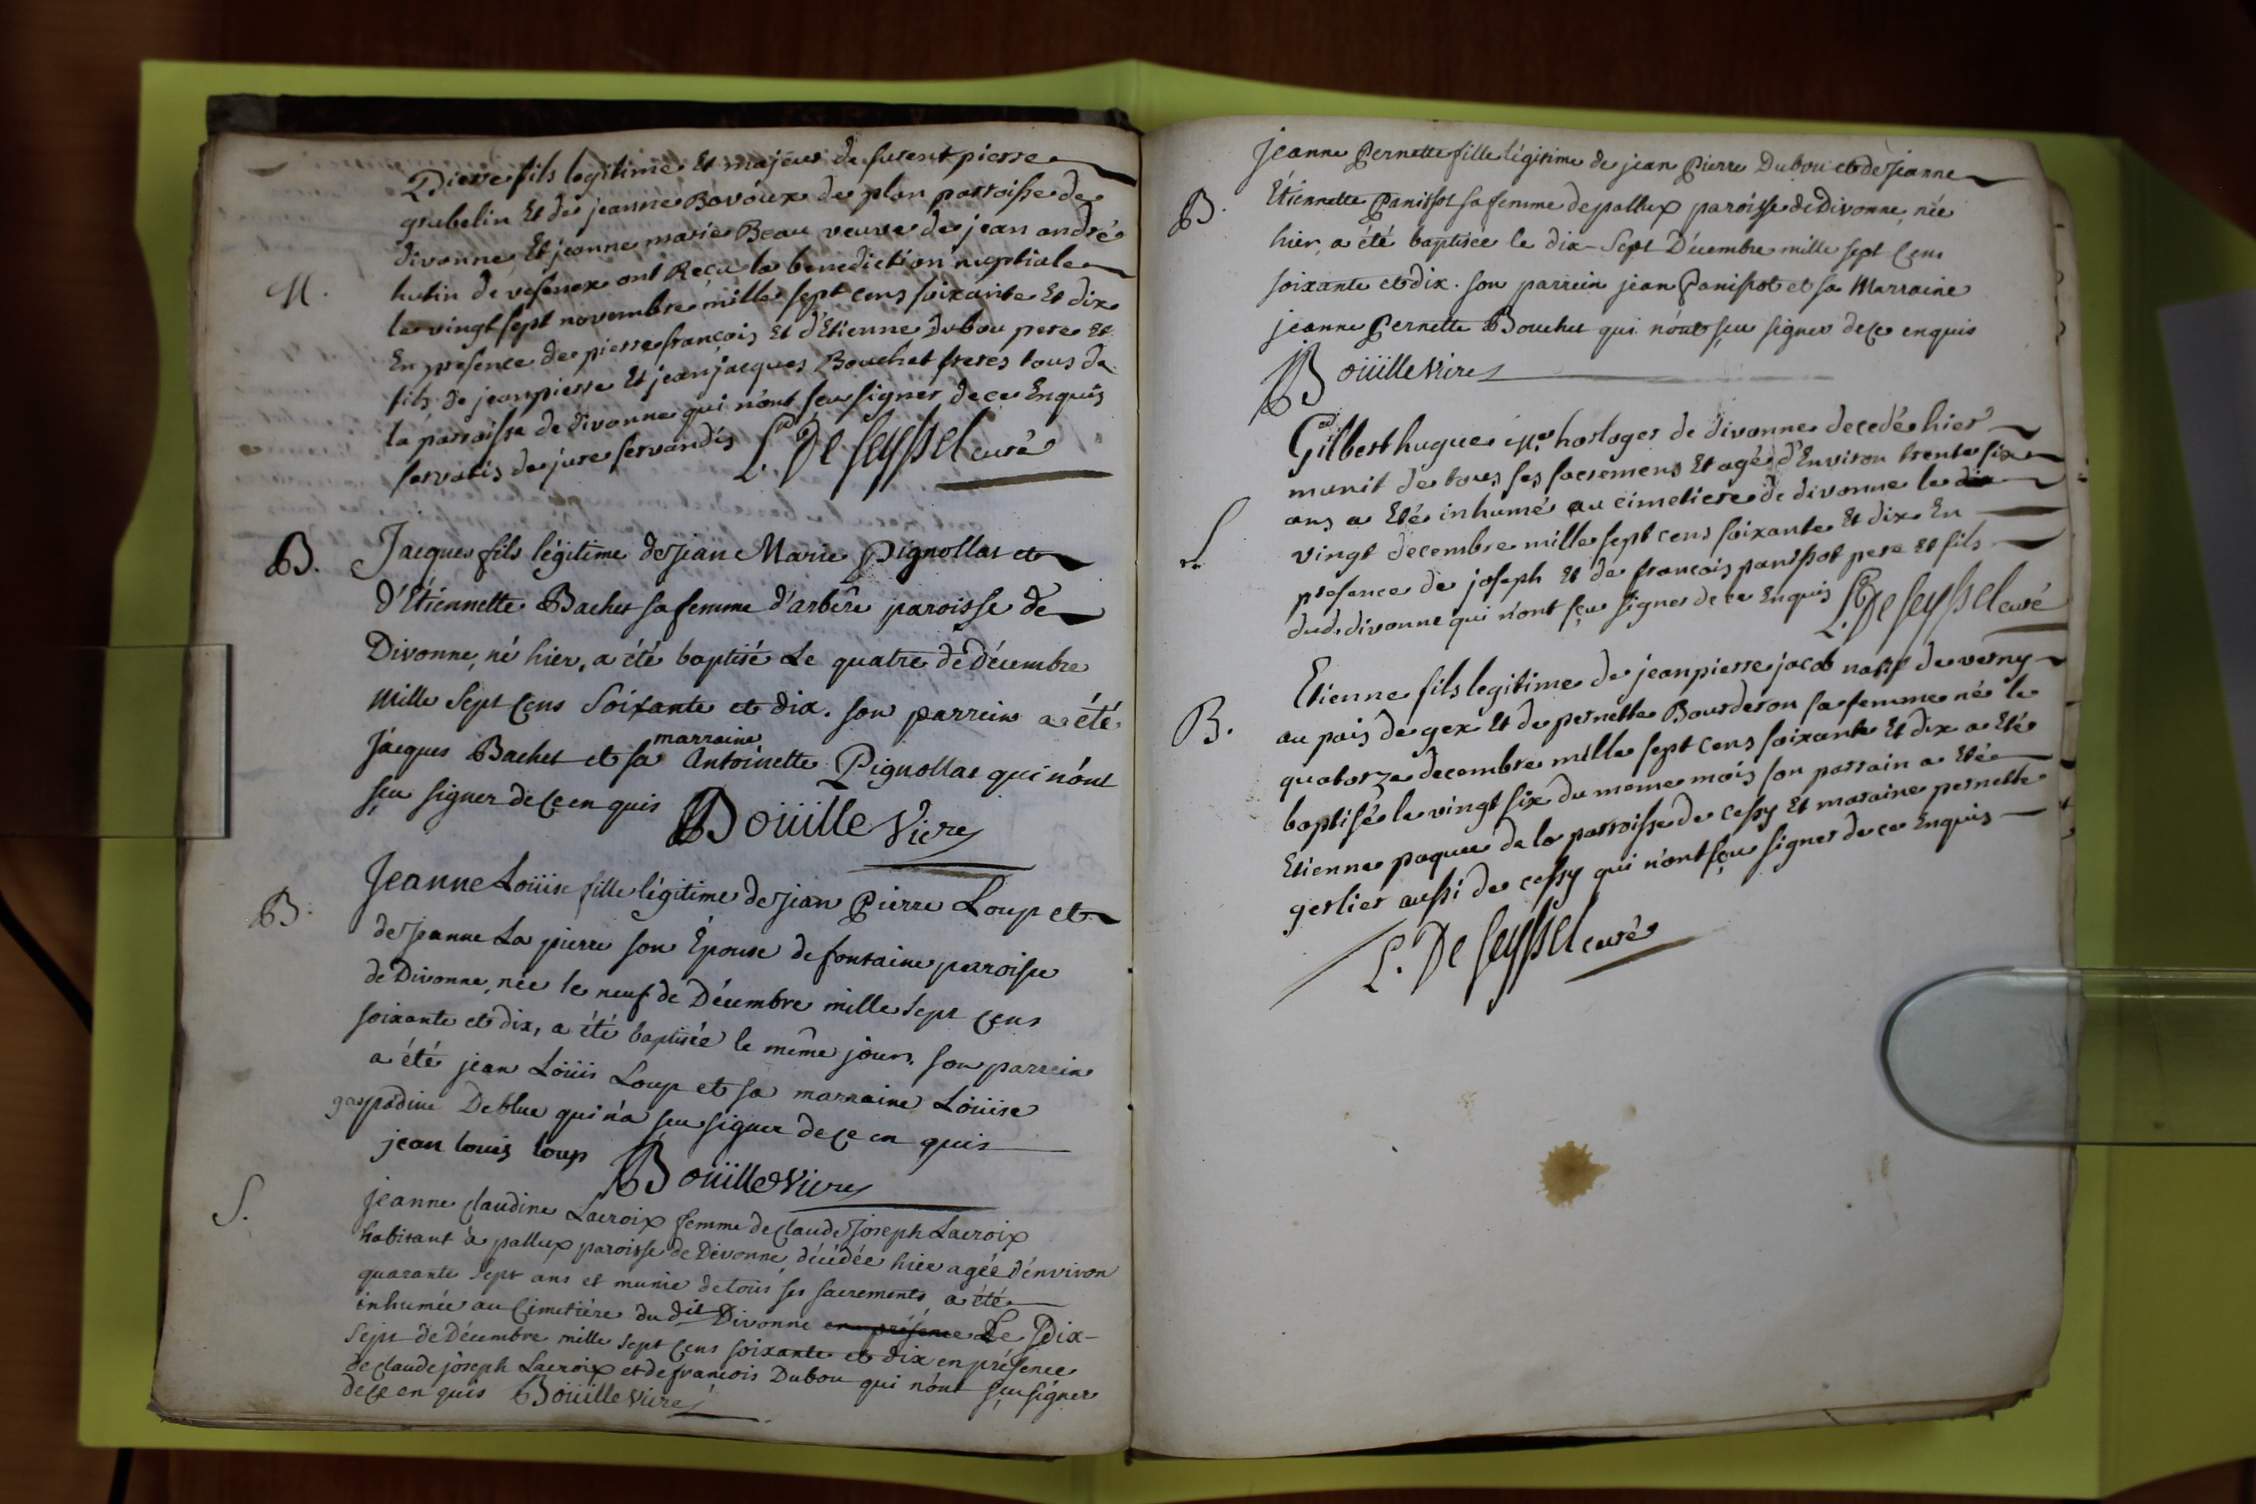 Pierre fils legitime Et majeur de furent pierre
grubelin Et de jeanne Bavoux de plan parroisse de
divonne, Et jeanne marie Beau veuve de jean andré
M.
hutin de vesenex ont Reçu la benediction nuptiale
le vingt sept novembre mille sept cens soixante Et dix
En presence de pierre françois Et d'Etienne Dubou pere Et
fils de jeanpierre Et jean jacques Bouchet freres tous de
la parroisse de divonne qui n'ont sçu signer de ce Enquis
servatis de jure servandis L. De Seyssel curé
B.
Jacques fils légitime de jean Marie Pignollat et
d'Etiennette Bachet sa femme d'arbêre paroisse de
Divonne, né hier, a été baptisé Le quatre de Décembre
mille sept Cens Soixante et dix. son parrein a été
marraine
Jacques Bachet et sa Antoinette Pignollat qui n'ont
sçu signer de ce en quis Boüille Vicre
B.
Jeanne Loüise fille légitime de jean Pierre Loup et
de jeanne La pierre son Epouse de fontaine parroisse
de Divonne, née le neuf de Décembre mille sept cens
soixante et dix, a été baptisée le même jour. son parrein
a été jean Loüis Loup et sa marraine Loüise
gaspardine Deblue qui n'a sçu signer de ce en quis
jean louis loup Boüille Vicre
S.
jeanne Claudine Lacroix femme de Claude Joseph Lacroix
habitant à pallux paroisse de Divonne, décédée hier agée d'environ
quarante sept ans et munie de tous ses sacrements a été
inhumée au Cimetière du dit Divonne en présence Le Dix-
sept de Décembre mille sept Cens soixante et dix en présence
de Claude joseph Lacroix et de françois Dubou qui n'ont sçu signer
de ce en quis Boüille Vicre
Jeanne Pernette fille légitime de jean Pierre Dubou et de Jeanne
B.
Etiennette Panissot sa femme de pallux paroisse de Divonne, née
hier, a été baptisée le dix-Sept Décembre mille sept Cens
soixante et dix. son parrein jean Panissot et sa Marraine
jeanne Pernette Bouchet qui n'ont sçu signer de ce enquis
Boüille Vicre
Gilbert hugue horloger de divonne decedé hier
munit de tous ses sacremens Et agé d'Environ trente six
S
ans a Eté inhumé au cimetiere de divonne le dix
vingt decembre mille sept cens soixante Et dix En
presence de joseph Et de françois panissot pere Et fils
dud. divonne qui n'ont sçu signer de ce Enquis L. De Seyssel curé
B.
Etienne fils legitime de jeanpierre jacob natif de verny
au païs de gex Et de pernette Bourderon sa femme né le
quatorze decembre mille sept cens soixante Et dix a Eté
baptisé le vingt six du meme mois son parrain a Eté
Etienne paquee de la parroisse de cessy Et maraine pernette
gerlier aussi de cessy qui n'ont sçu signer de ce Enquis
L. De Seyssel curé